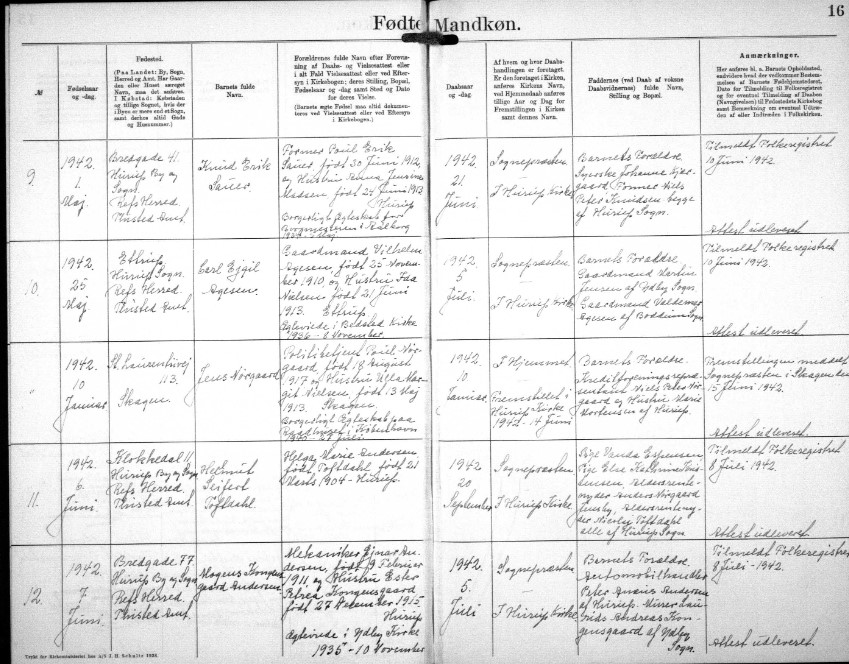 Fødte Mandkøn.
16
№
Fødselsaar
og -dag.
Fødested.
(Paa Landet: By, Sogn,
Herred og Amt. Her Gaar-
den eller Huset særeget
Navn, maa det anføres.
I Købstad: Købstaden
og tillige Sognet, hvis der
i Byen er mere end et Sogn,
samt derhos altid Gade
og Husnummer.)
Barnets fulde
Navn.
Forældrenes fulde Navn efter Forevis-
ning af Daabs- og Vielsesattest eller
i alt Fald Vielsesattest eller ved Efter-
syn i Kirkebogen; deres Stilling, Bopæl,
Fødselsaar og -dag samt Sted og Dato
for deres Vielse.
(Barnets ægte Fødsel maa altid dokumen-
teres ved Vielsesattest eller ved Eftersyn
i Kirkebogen.)
Daabsaar
og -dag.
Af hvem og hvor Daabs-
handlingen er foretaget.
Er den foretaget i Kirken,
anføres Kirkens Navn,
ved Hjemmedaab anføres
tillige Aar og Dag for
Fremstillingen i Kirken
samt dennes Navn.
Faddernes (ved Daab af voksne
Daabsvidnernes) fulde Navn,
Stilling og Bopæl.
Anmærkninger.
Her anføres bl. a. Barnets Opholdssted,
endvidere hvad der vedkommer Bestemmel-
sen af Barnets Fødehjemstedsret,
Dato for Tilmelding til Folkeregistret
og for eventuel Tilmelding af Daaben
(Navngivelsen) til Fødestedets Kirkebog
samt Bemærkning om eventuel Udtræ-
den af eller Indtræden i Folkekirken.
9.
1942.
1.
Maj.
Bredgade 41.
Hurup By og
Sogn.
Refs Herred.
Thisted Amt.
Knud Erik
Sauer.
Former Poul Erik
Sauer, født 30 Juni 1912,
og Hustru Anna Jensine
Madsen, født 24 Juni 1913
Hurup
Borgerligt Ægteskab for
Borgmesteren i Aalborg
1942
21
Juni
Sognepræsten
I Hurup Kirke
Barnets Forældre
Syerske Johanne Kjær-
gaard Former Niels
Peter Knudsen begge
af Hurup Sogn.
Tilmeldt Folkeregistret
10 Juni 1942.
Attest udleveret
10.
1942.
25
Maj.
Ettrup
Hurup Sogn.
Refs Herred.
Thisted Amt
Carl Ejgil
Agesen.
Gaardmand Vilhelm
Agesen, født 25 Novem-
ber 1910, og Hustru Fea
Nielsen født 21 Juni
1913. Ettrup
Ægteviede i Bedsted Kirke
1936 - 8 November.
1942.
5
Juli.
Sognepræsten.
I Hurup Kirke
Barnets Forældre
Gaardmand Martin
Jensen af Ydby Sogn.
Gaardmand Valdemar
Agesen af Boddum Sogn.
Tilmeldt Folkeregistret
10 Juni 1942.
Attest udleveret.
"
1942.
10
Januar.
St. Laurentiivej
113.
Skagen.
Jens Nörgaard
Politibetjent Poul Nör-
gaard, født 18 August
1917 og Hustru Ulla Mar-
git Nielsen, født 13 Maj
1913. Skagen.
Borgerligt Ægteskab paa
Raadhuset i København
1942.
10
Januar
I Hjemmet
Fremstillet i
Hurup Kirke
1942 - 14 Juni
Barnets Forældre.
Kreditforeningsrepræ-
sentant Niels Peter Nör-
gaard og Hustru Marie
Mortensen af Hurup.
Fremstillingen meddelt
Sognepræsten i Skagen den
15 Juni 1942.
Attest udleveret
11.
1942.
6
Juni.
Klokkedal 11
Hurup By og Sogn
Refs Herred.
Thisted Amt.
Helmut
Seifert
Toftdahl.
Helga Marie Andersen
født Toftdahl, født 21
Marts 1904 - Hurup.
1942
20
September
Sognepræsten
I Hurup Kirke
Pige Vanda Espensen,
Pige Else Kathrine Kris-
tensen, Aldersrente-
nyder Anders Nörgaard
Jensby, Aldersrenteny-
der Nicolaj Toftdahl
alle af Hurup Sogn
Tilmeldt Folkeregistret
8 Juli 1942.
Attest udleveret
12.
1942
7
Juni.
Bredgade 77.
Hurup By og Sogn
Refs Herred.
Thisted Amt.
Mogens Kongens-
gaard Andersen.
Mekaniker Ejnar An-
dersen, født 19 Februar
1911, og Hustru Ester
Petrea Kongensgaard
født 27 December 1915
Hurup
Ægteviede i Ydby Kirke
1935 - 10 November
1942.
5.
Juli
Sognepræsten.
I Hurup Kirke
Barnets Forældre
Automobilhandler
Peter Ananis Andersen
af Hurup. Murer Lau-
rids Andreas Kon-
gensgaard af Ydby
Sogn.
Tilmeldt Folkeregistret
8 Juli - 1942.
Attest udleveret.
Trykt for Kirkeministeriet hos A/S J. H. Schultz 1938.